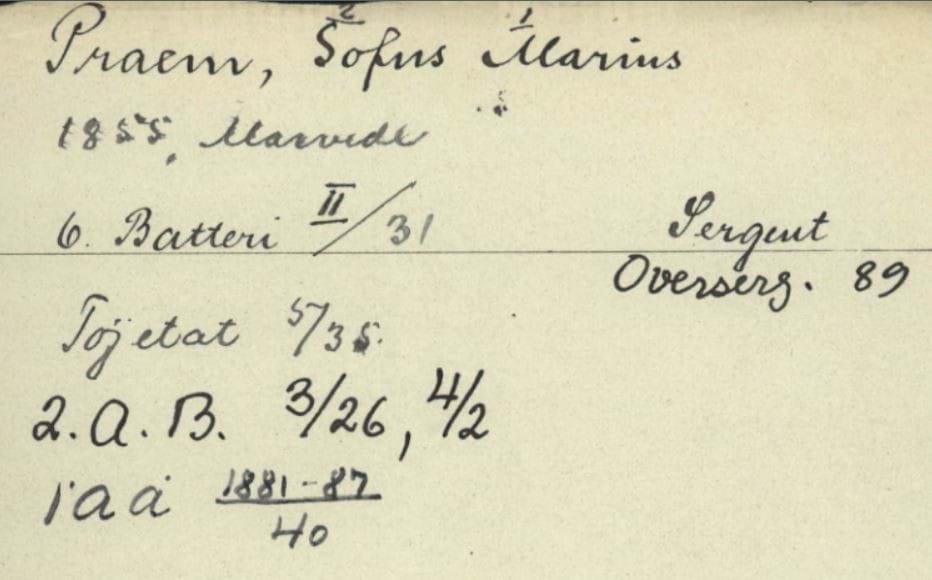 Praem, Sofus Marius
2 1
1855, Marvede
6. Batteri II/31 Sergent
Oversерg. 89
Tøjetat 5/35
2.A.B. 3/26, 4/2
1881-87
40